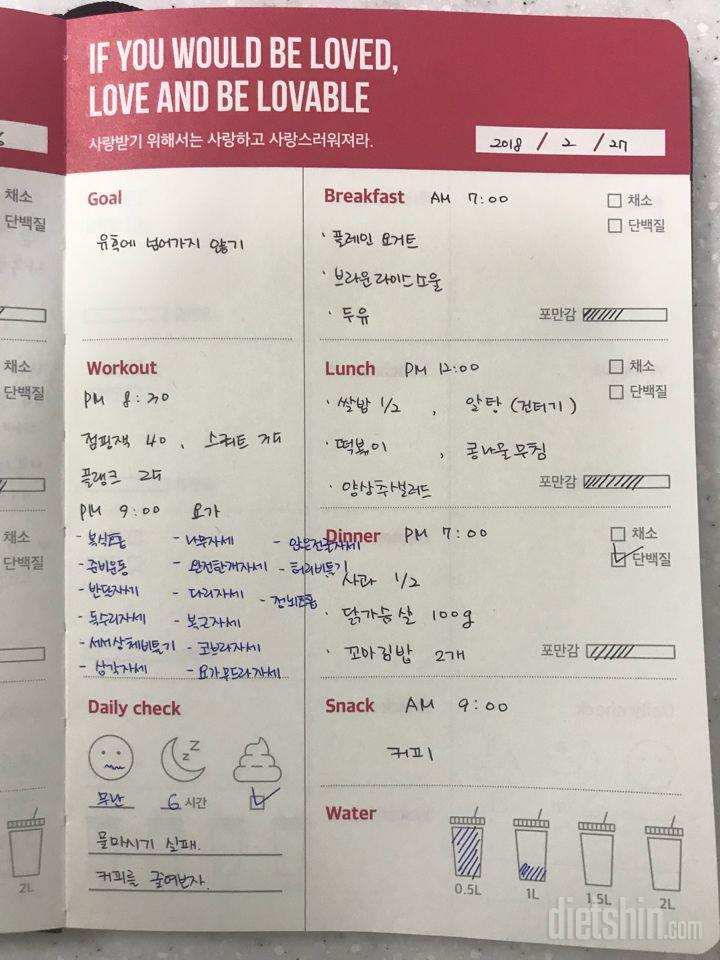 IF YOU WOULD BE LOVED,
LOVE AND BE LOVABLE
사랑받기 위해서는 사랑하고 사랑스러워져라.
2018 / 2 / 27
Goal
유혹에 넘어가지 않기
Workout
PM 8:30
점핑잭 40, 스쿼트
플랭크
PM 9:00 요가
- 복식호흡
- 준비운동
- 반달자세
- 독수리자세
- 서서상체비틀기
- 삼각자세
- 나무자세
- 완전한개자세
- 다리자세
- 복근자세
- 코브라자세
- 요가무드라자세
- 앉은전굴자세
- 허리비틀기
- 정뇌호흡
Daily check
무난
6 시간
물마시기 실패.
커피를 줄여보자.
Breakfast AM 7:00
채소
단백질
· 플레인 요거트
· 브라운라이스소울
· 두유
포만감
Lunch PM 12:00
채소
단백질
· 쌀밥 1/2 , 알탕 (건더기)
· 떡볶이 , 콩나물무침
· 양상추샐러드
포만감
Dinner PM 7:00
채소
단백질
사과 1/2
· 닭가슴살 100g
· 꼬마김밥 2개
포만감
Snack AM 9:00
커피
Water
0.5L
1L
1.5L
2L
채소
단백질
채소
단백질
채소
단백질
2L
dietshin.com